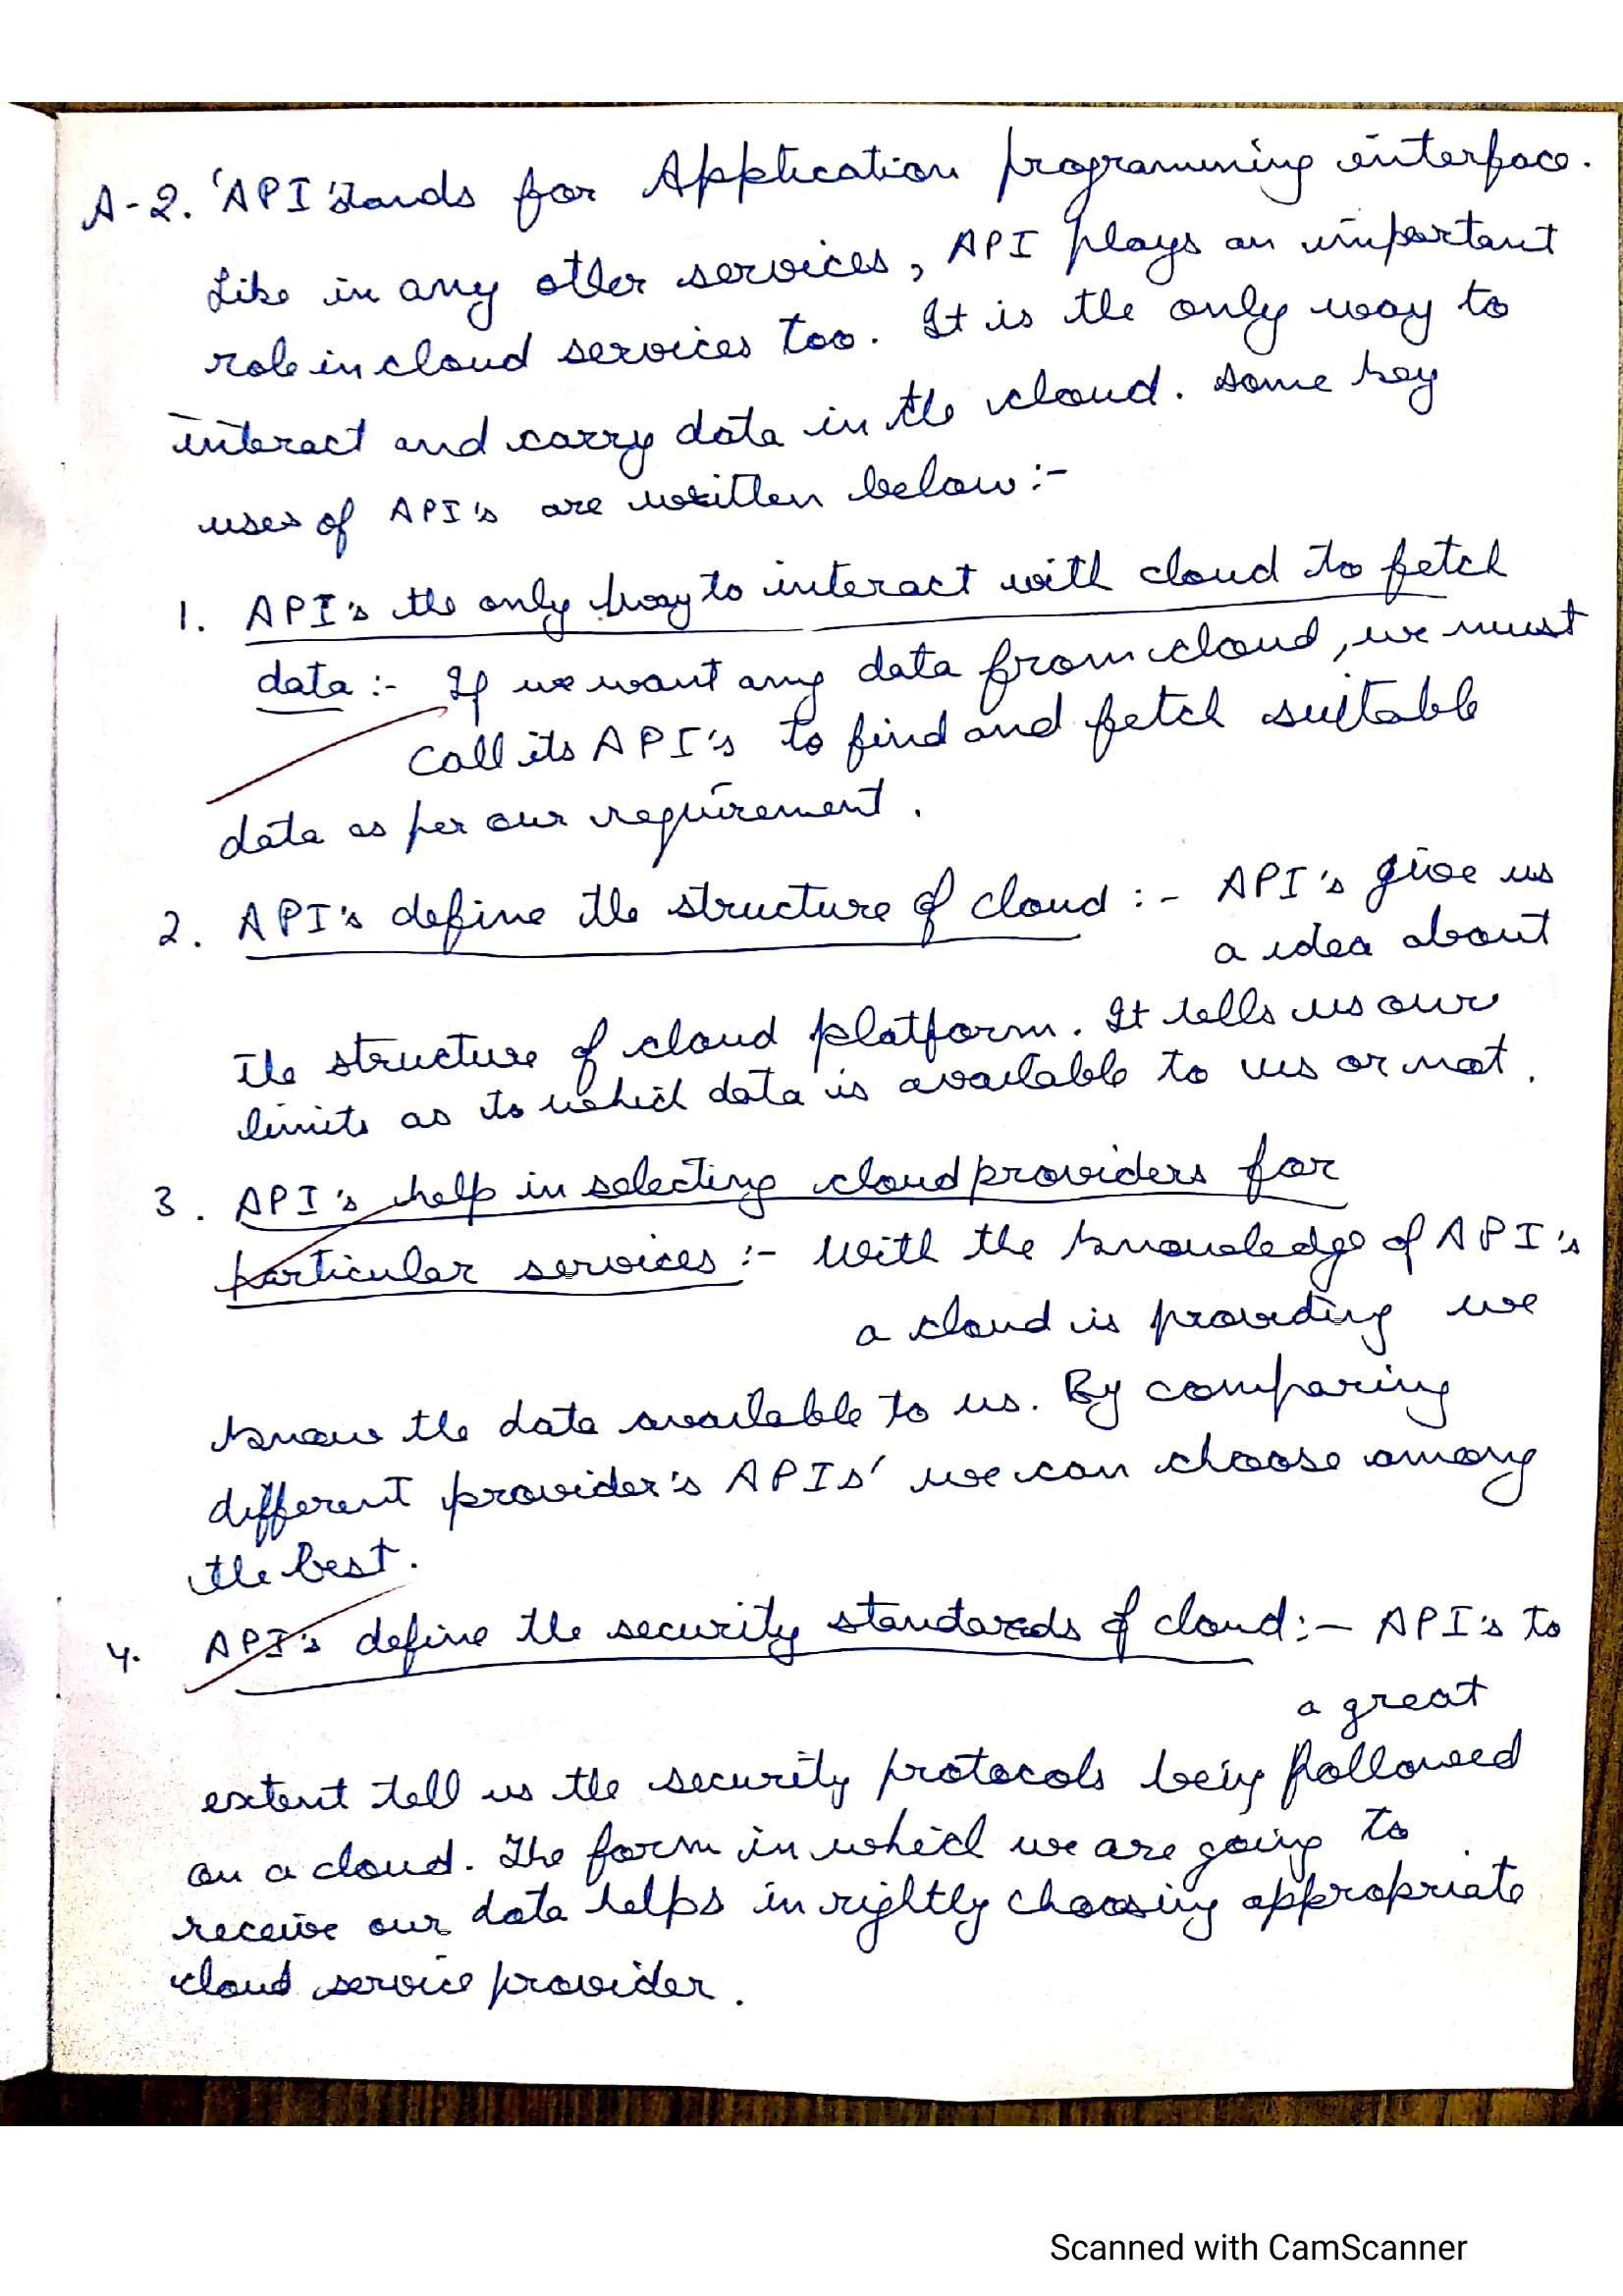 A-2. 'API' stands for Application programming interface.
Like in any other services, API plays an important
role in cloud services too. It is the only way to
interact and carry data in the cloud. Some key
uses of API's are written below:-
1. API's the only way to interact with cloud to fetch
data :- If we want any data from cloud, we must
call its API's to find and fetch suitable
data as per our requirement.
2. API's define the structure of cloud :- API's give us
a idea about
the structure of cloud platform. It tells us our
limits as to which data is available to us or not.
3. API's help in selecting cloud providers for
particular services :- With the knowledge of API's
a cloud is providing we
know the data available to us. By comparing
different provider's APIs' we can choose among
the best.
4. API's define the security standards of cloud :- API's to
a great
extent tell us the security protocols being followed
on a cloud. The form in which we are going to
receive our data helps in rightly choosing appropriate
cloud service provider.
Scanned with CamScanner